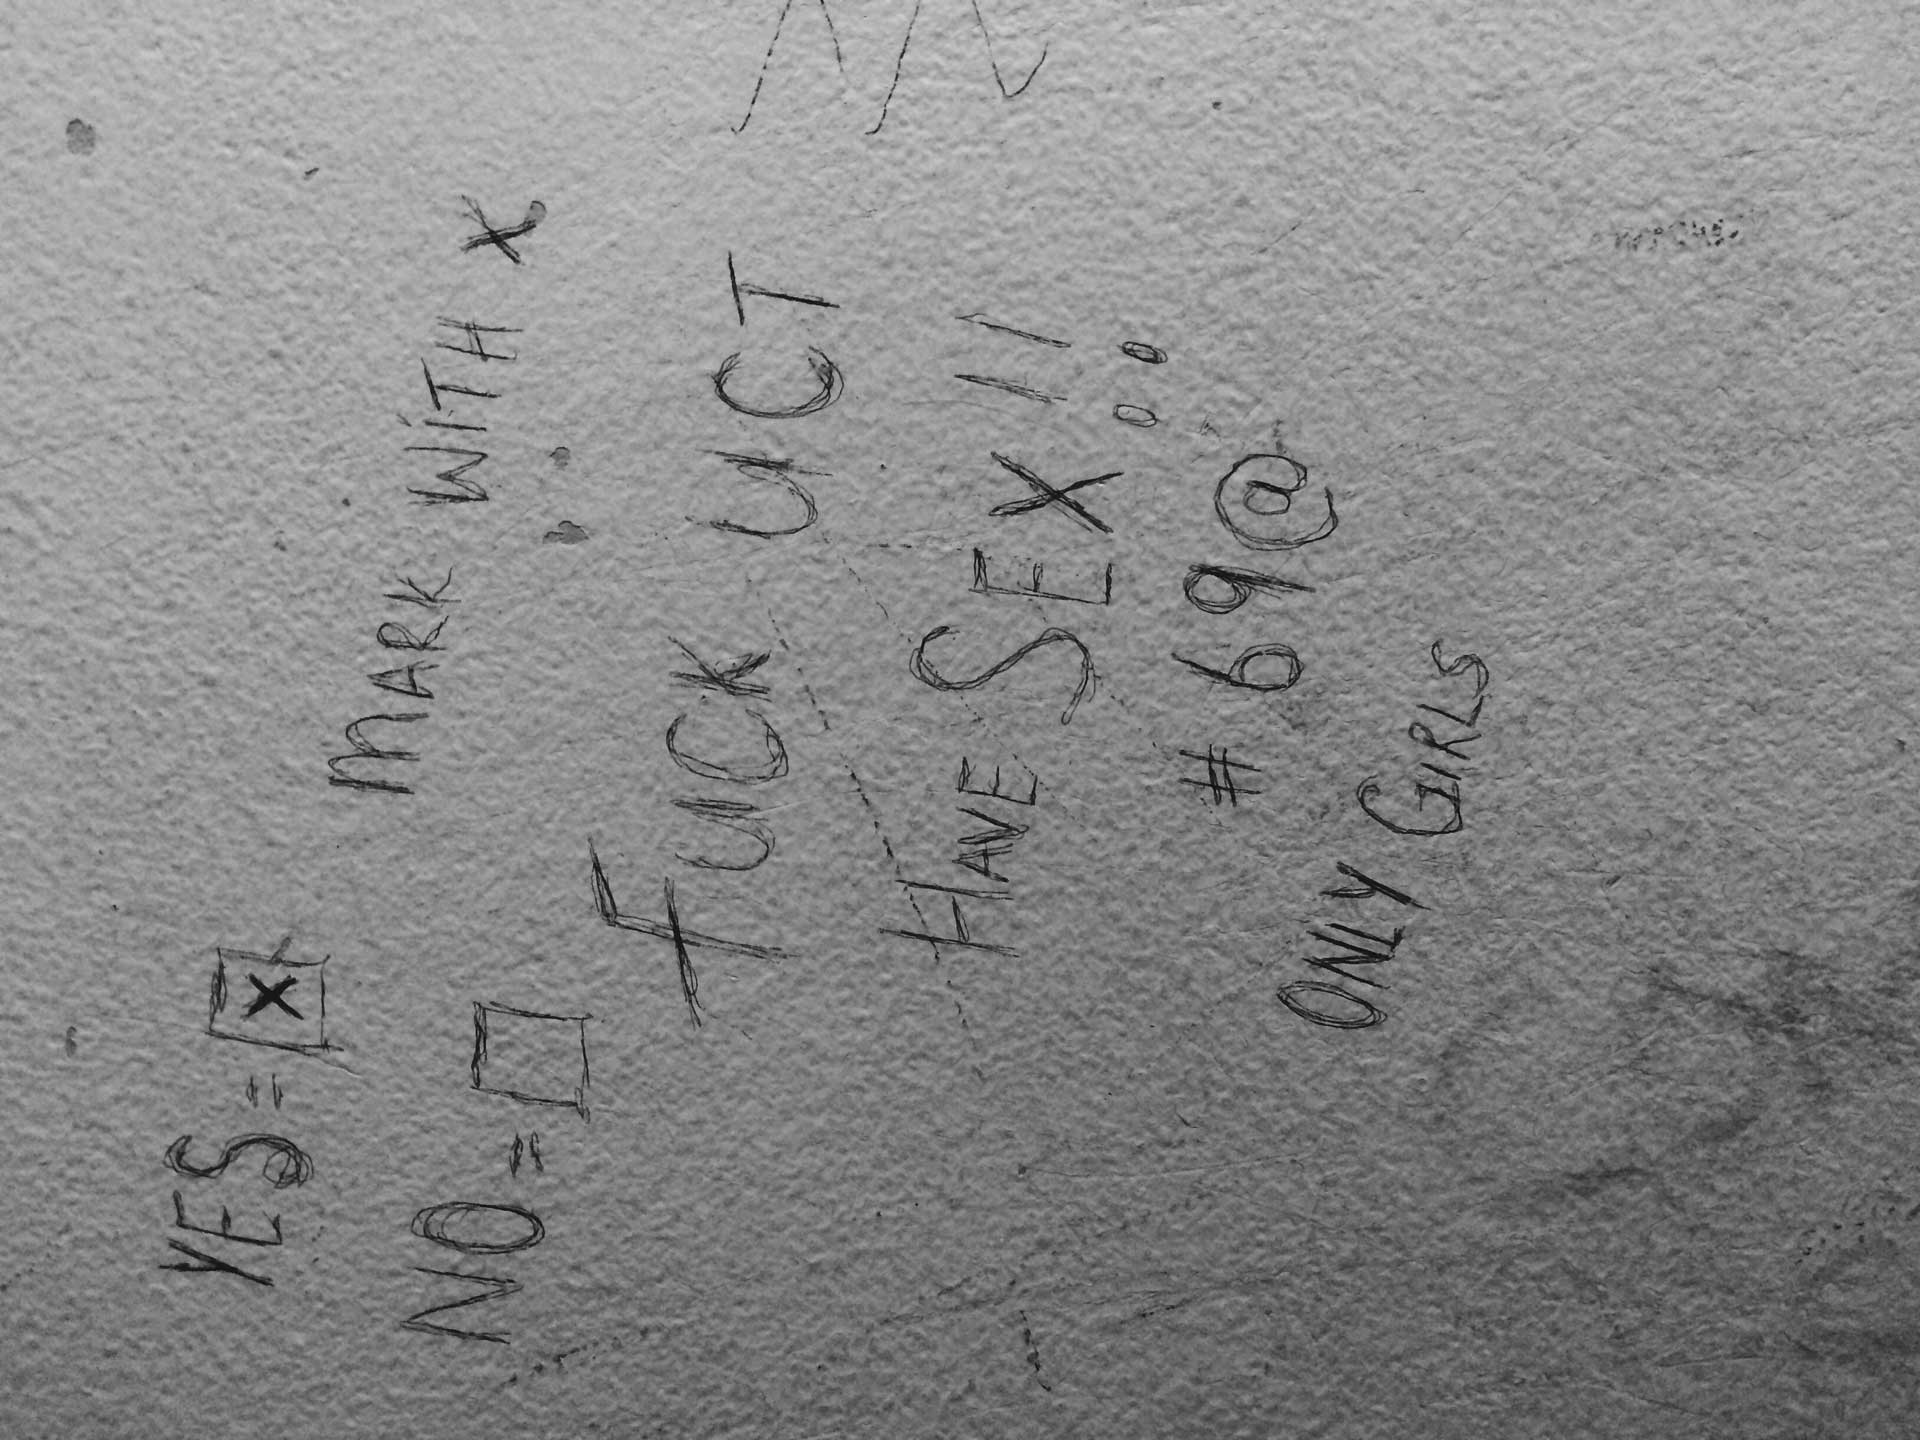 YES = ☒
NO = ☐
MARK WITH X
FUCK UCT
HAVE SEX!!
# 69@
ONLY GIRLS